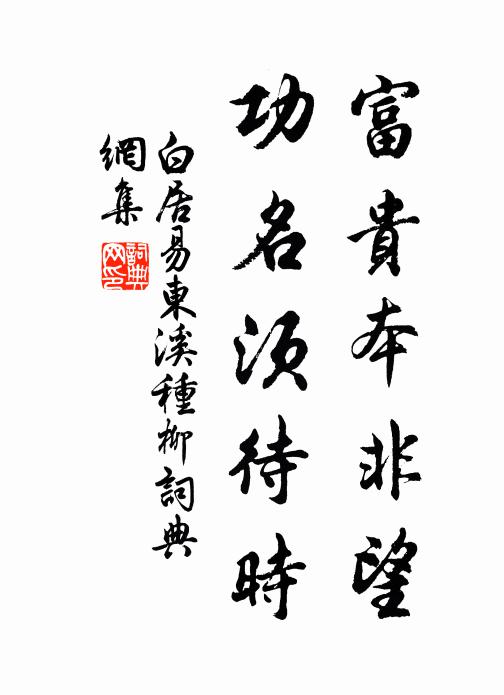 富貴本非望
功名須待時
白居易東溪種柳詞典
網集
詞典
网印